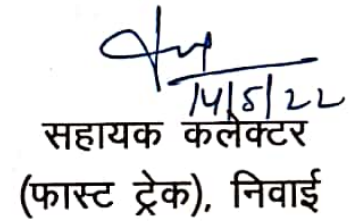 14/5/22
सहायक कलेक्टर
(फास्ट ट्रेक), निवाई